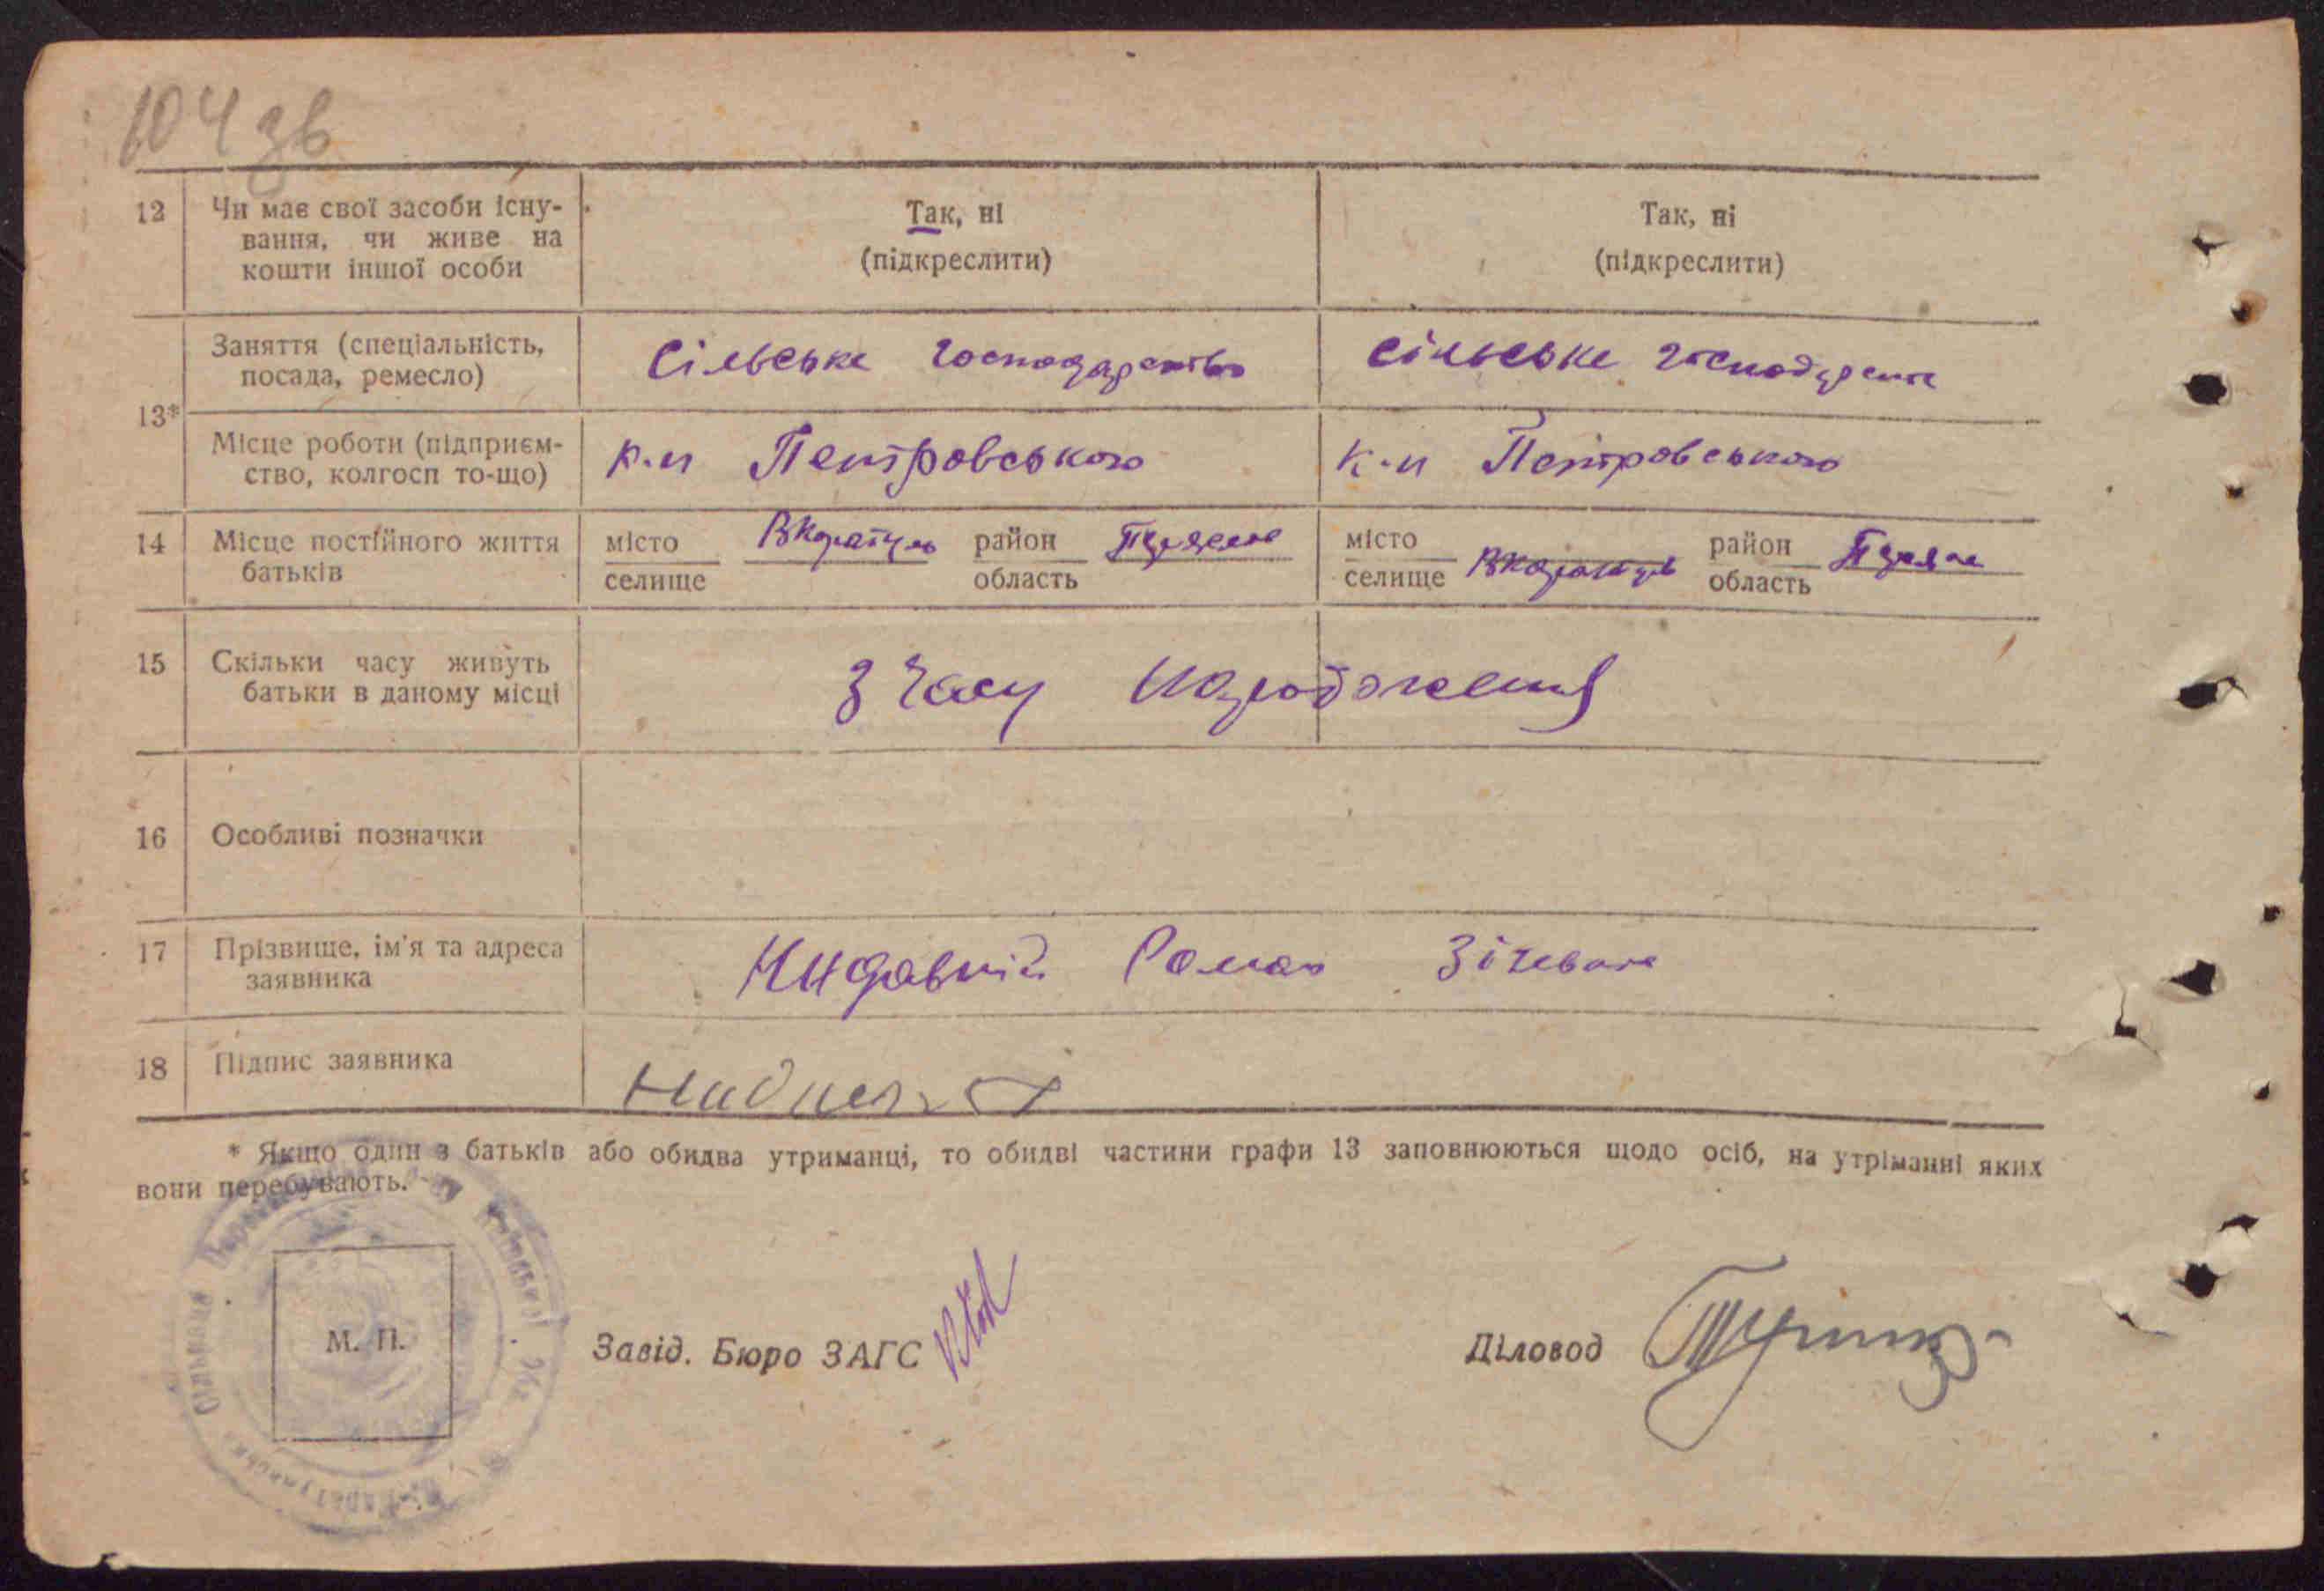 104 зв
12 Чи має свої засоби існу- Так, ні Так, ні
вання, чи живе на (підкреслити) (підкреслити)
кошти іншої особи
Заняття (спеціальність, сільське господарство сільське господарств
посада, ремесло)
13*
Місце роботи (підприєм- к-п Петровського к-п Петровського
ство, колгосп то-що)
14 Місце постійного життя місто ВКаратуль район місто ВКаратуль район
батьків селище область селище область
15 Скільки часу живуть З часу народження
батьки в даному місці
16 Особливі позначки
17 Прізвище, ім'я та адреса Роман
заявника
18 Підпис заявника
* Якщо один з батьків або обидва утриманці, то обидві частини графи 13 заповнюються щодо осіб, на утріманні яких
вони перебувають.
М. П.
Завід. Бюро ЗАГС Діловод